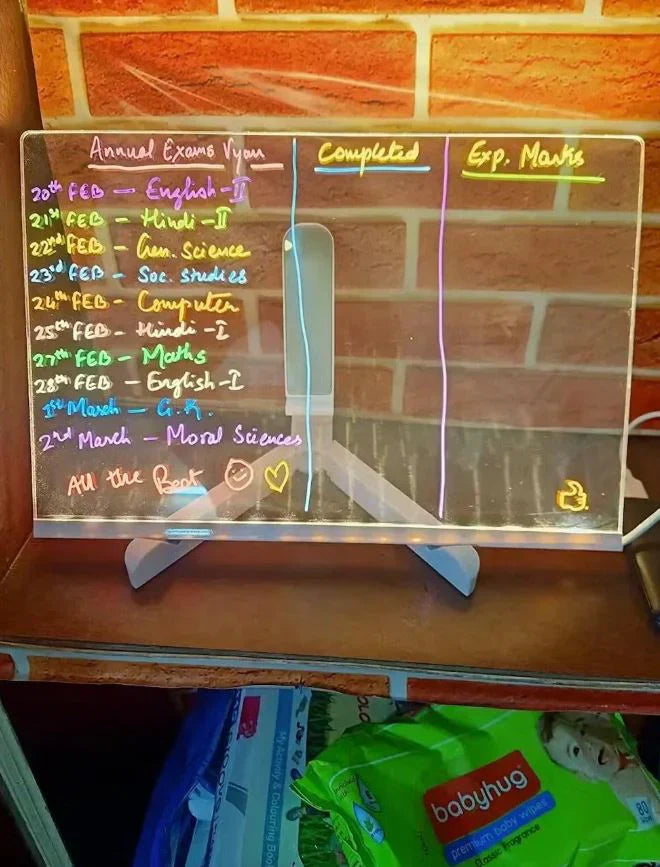 Annual Exams Vyan
Completed
Exp. Marks
20th FEB — English-II
21st FEB — Hindi-II
22nd FEB — Gen. Science
23rd FEB — Soc. Studies
24th FEB — Computer
25th FEB — Hindi-I
27th FEB — Maths
28th FEB — English-I
1st March — G.K.
2nd March — Moral Sciences
All the Best
My Activity & Colouring Book
babyhug
premium baby wipes
Classic Fragrance
80